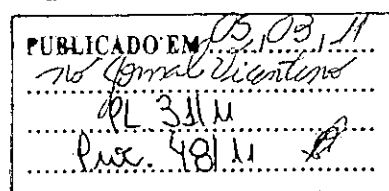 PUBLICADO EM 05,03,11
no Jornal Vicentino
PL. 31/11
Proc. 48/11